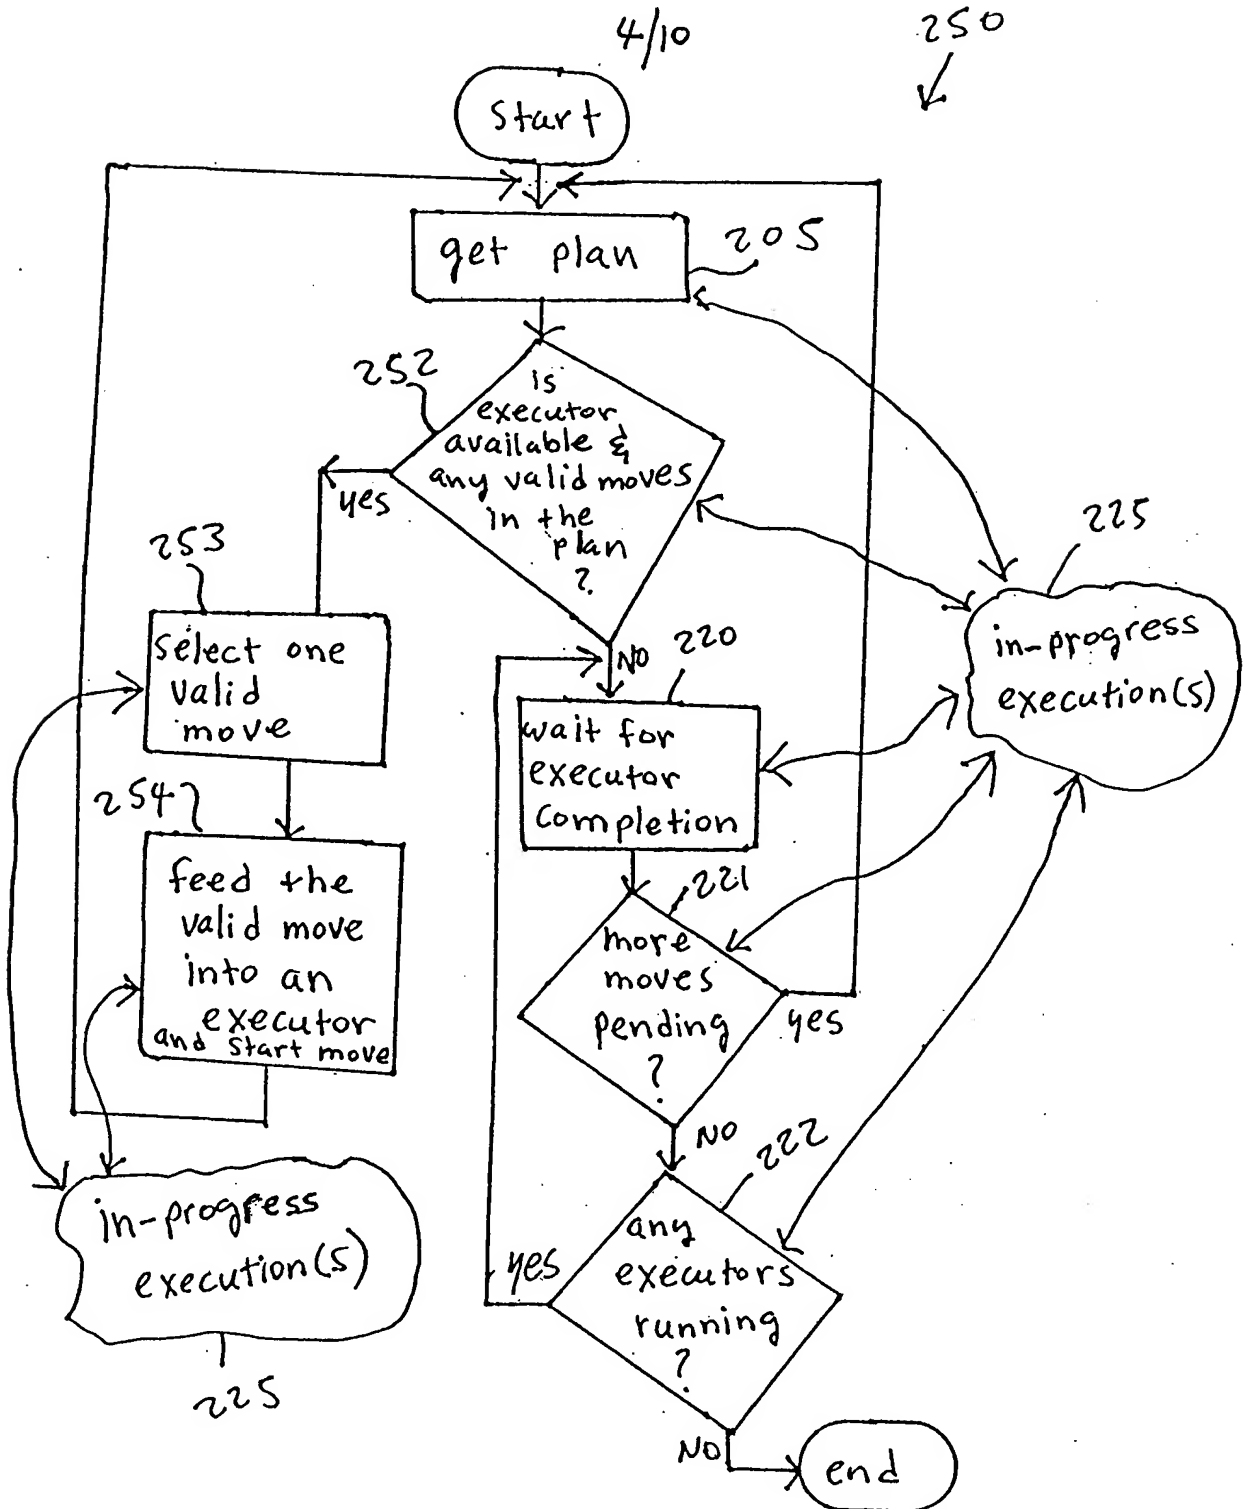 4/10
250
Start
get plan
205
252
is
executor
available &
any valid moves
in the
plan
?
yes
NO
253
select one
valid
move
254
feed the
valid move
into an
executor
and start move
225
in-progress
execution(s)
220
wait for
executor
completion
221
more
moves
pending
?
yes
NO
222
any
executors
running
?
yes
NO
in-progress
execution(s)
225
end